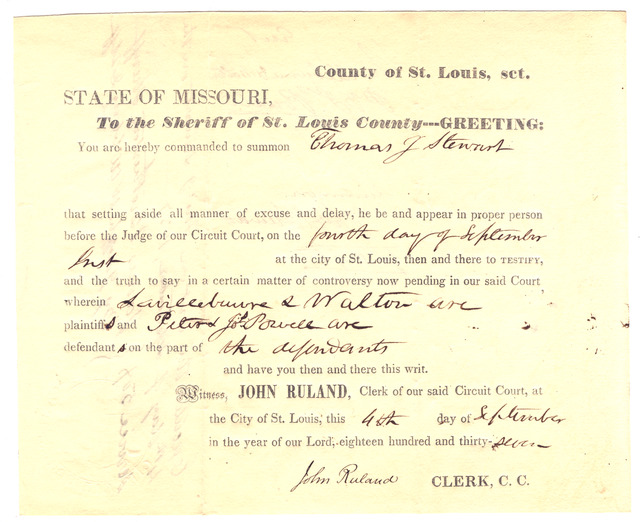 County of St. Louis, sct.
STATE OF MISSOURI,
To the Sheriff of St. Louis County---GREETING:
You are hereby commanded to summon Thomas J Stewart
that setting aside all manner of excuse and delay, he be and appear in proper person
before the Judge of our Circuit Court, on the fourth day of September
Inst at the city of St. Louis, then and there to TESTIFY,
and the truth to say in a certain matter of controversy now pending in our said Court
wherein & Walton are
plaintiffs and Peter & Jos Powell are
defendants on the part of the defendants
and have you then and there this writ.
Witness, JOHN RULAND, Clerk of our said Circuit Court, at
the City of St. Louis, this 4th day of September
in the year of our Lord, eighteen hundred and thirty-seven
John Ruland CLERK, C. C.